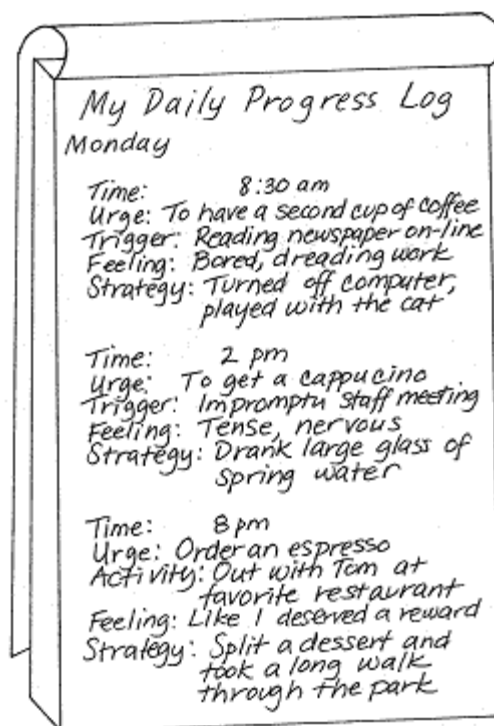 My Daily Progress Log
Monday
Time: 8:30 am
Urge: To have a second cup of coffee
Trigger: Reading newspaper on-line
Feeling: Bored, dreading work
Strategy: Turned off computer,
played with the cat
Time: 2 pm
Urge: To get a cappucino
Trigger: Impromptu staff meeting
Feeling: Tense, nervous
Strategy: Drank large glass of
spring water
Time: 8 pm
Urge: Order an espresso
Activity: Out with Tom at
favorite restaurant
Feeling: Like I deserved a reward
Strategy: Split a dessert and
took a long walk
through the park